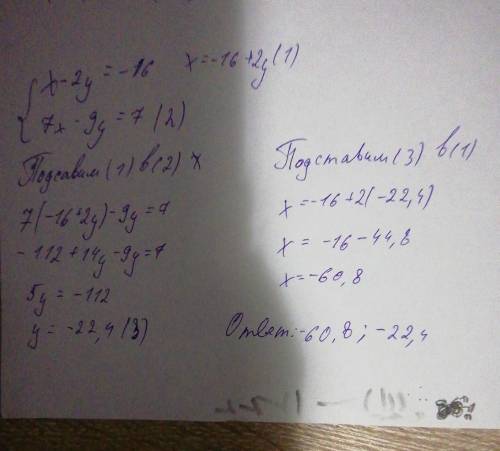 x-2y=-16 x=-16+2y(1)
7x-9y=7 (2)
Подсавим (1) в (2) x
7(-16+2y)-9y=7
-112+14y-9y=7
5y=-112
y=-22,4 (3)
Подставим (3) в (1)
x=-16+2(-22,4)
x=-16-44,8
x=-60,8
Ответ:-60,8; -22,4